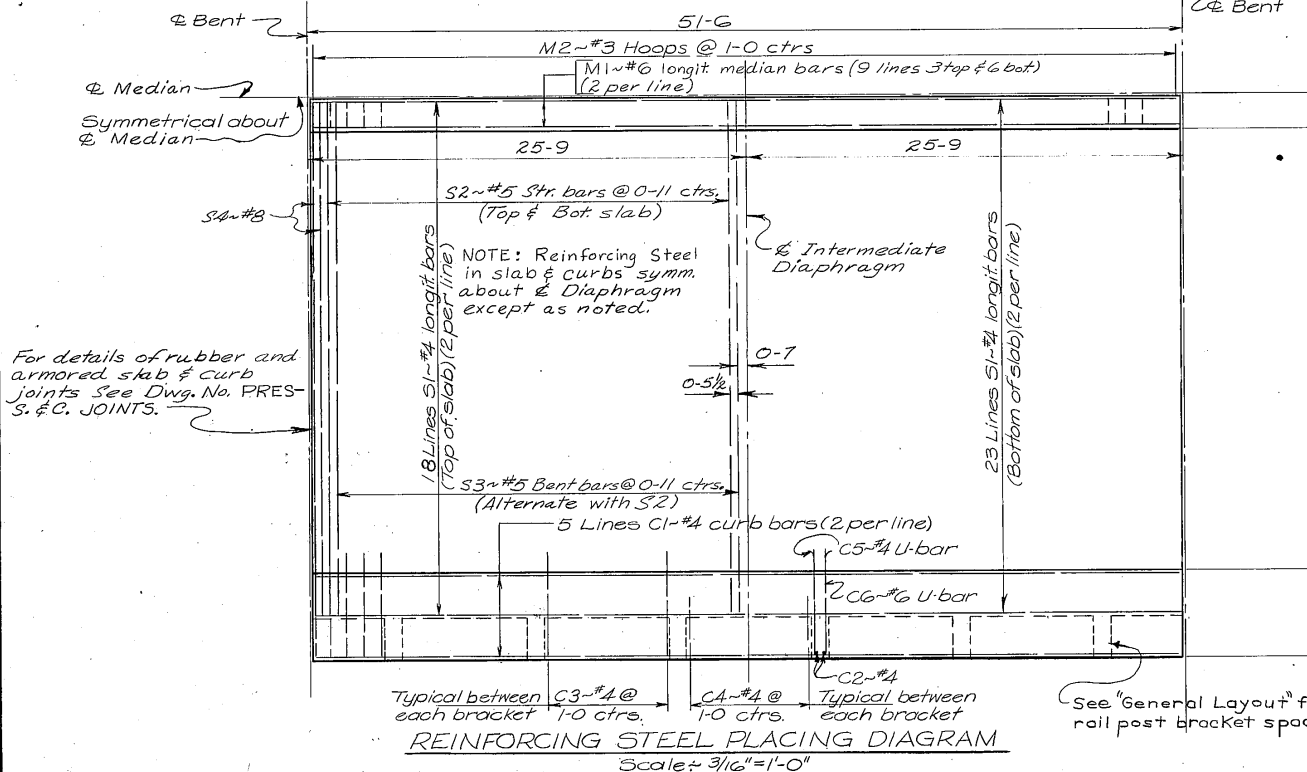 ℄ Bent
51-6
℄ Bent
M2~#3 Hoops @ 1-0 ctrs
M1~#6 longit. median bars (9 lines 3 top & 6 bot)
(2 per line)
℄ Median
Symmetrical about
℄ Median
25-9
25-9
S2~#5 Str. bars @ 0-11 ctrs.
(Top & Bot. slab)
S4~#8
NOTE: Reinforcing Steel
in slab & curbs symm.
about ℄ Diaphragm
except as noted.
℄ Intermediate
Diaphragm
18 Lines S1~#4 longit bars
(Top of slab)(2 per line)
23 Lines S1~#4 longit bars
(Bottom of slab)(2 per line)
0-7
0-5½
For details of rubber and
armored slab & curb
joints See Dwg. No. PRES-
S. & C. JOINTS.
S3~#5 Bent bars @ 0-11 ctrs.
(Alternate with S2)
5 Lines C1~#4 curb bars (2 per line)
C5~#4 U-bar
C6~#6 U-bar
C2~#4
Typical between
each bracket
C3~#4 @
1-0 ctrs.
C4~#4 @
1-0 ctrs.
Typical between
each bracket
See "General Layout" f
rail post bracket spac
REINFORCING STEEL PLACING DIAGRAM
Scale~ 3/16"=1'-0"